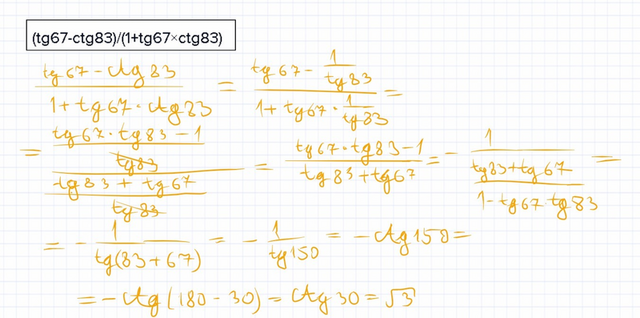 (tg67-ctg83)/(1+tg67×ctg83)
(tg67 - ctg83)/(1 + tg67 · ctg83) = (tg67 - 1/tg83)/(1 + tg67 · 1/tg83) =
= ((tg67 · tg83 - 1)/tg83)/((tg83 + tg67)/tg83) = (tg67 · tg83 - 1)/(tg83 + tg67) = - 1/((tg83 + tg67)/(1 - tg67 · tg83)) =
= - 1/tg(83 + 67) = - 1/tg150 = - ctg150 =
= - ctg(180 - 30) = ctg30 = √3